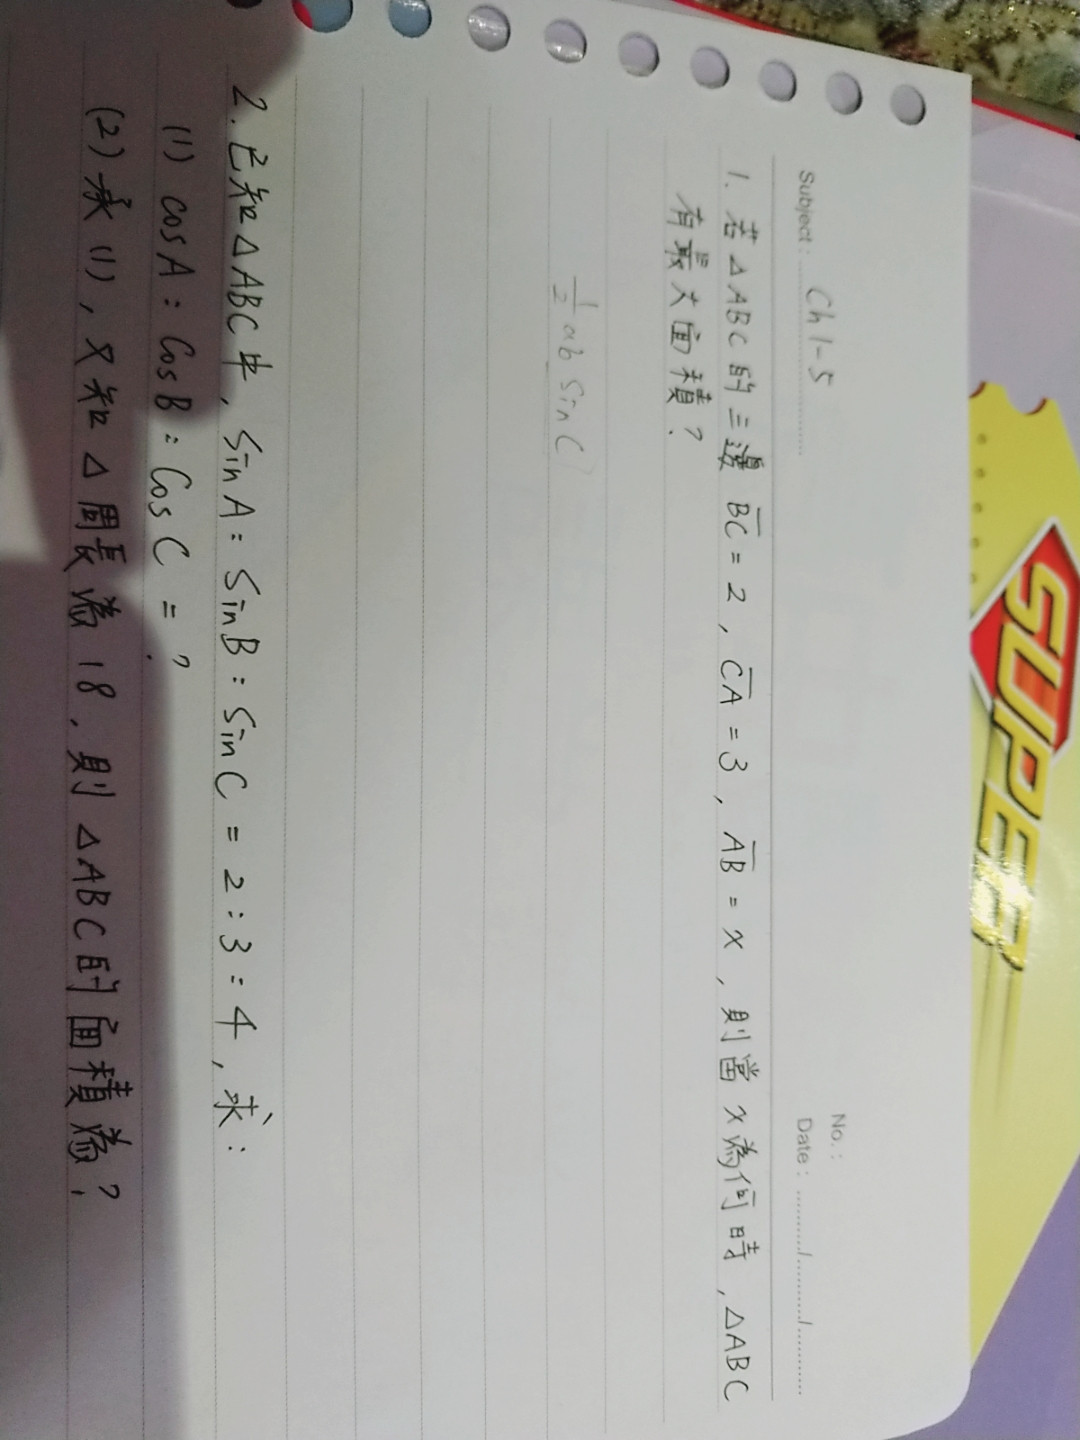 SUPER
No. :
Subject : Ch 1-5 Date : ........./........./.........
1. 若△ABC的三邊 BC = 2 , CA = 3 , AB = x , 則當 x 為何時 , △ABC
有最大面積?
1/2 ab sin C
2. 已知△ABC中 , sin A : sin B : sin C = 2 : 3 : 4 , 求 :
(1) cos A : cos B : cos C = ?
(2) 承 (1) , 又知△周長為 18 , 則△ABC的面積為?